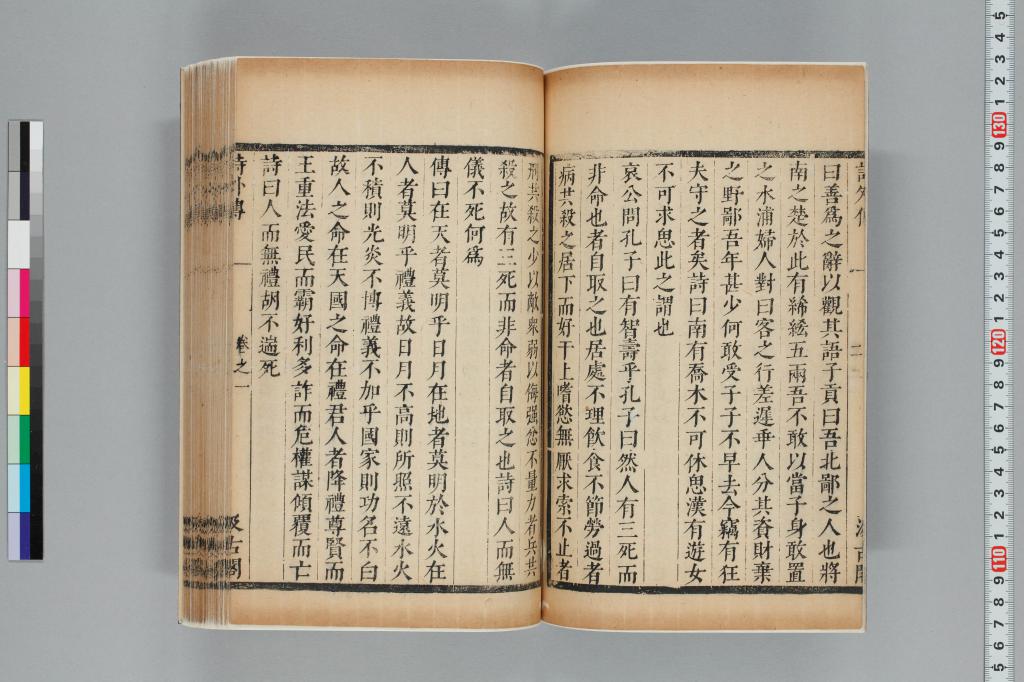 曰善爲之辭以觀其語子貢曰吾北鄙之人也將
南之楚於此有絺綌五兩吾不敢以當子身敢置
之水浦婦人對曰客之行差遲乖人分其資財棄
之野鄙吾年甚少何敢受子子不早去今竊有狂
夫守之者矣詩曰南有喬木不可休思漢有遊女
不可求思此之謂也
哀公問孔子曰有智壽乎孔子曰然人有三死而
非命也者自取之也居處不理飲食不節勞過者
病共殺之居下而好干上嗜慾無厭求索不止者
刑共殺之少以敵衆弱以侮强忿不量力者兵共
殺之故有三死而非命者自取之也詩曰人而無
儀不死何爲
傳曰在天者莫明乎日月在地者莫明於水火在
人者莫明乎禮義故日月不高則所照不遠水火
不積則光炎不博禮義不加乎國家則功名不白
故人之命在天國之命在禮君人者降禮尊賢而
王重法愛民而霸好利多詐而危權謀傾覆而亡
詩曰人而無禮胡不遄死
詩外傳
卷之一
汲古閣
130
120
110